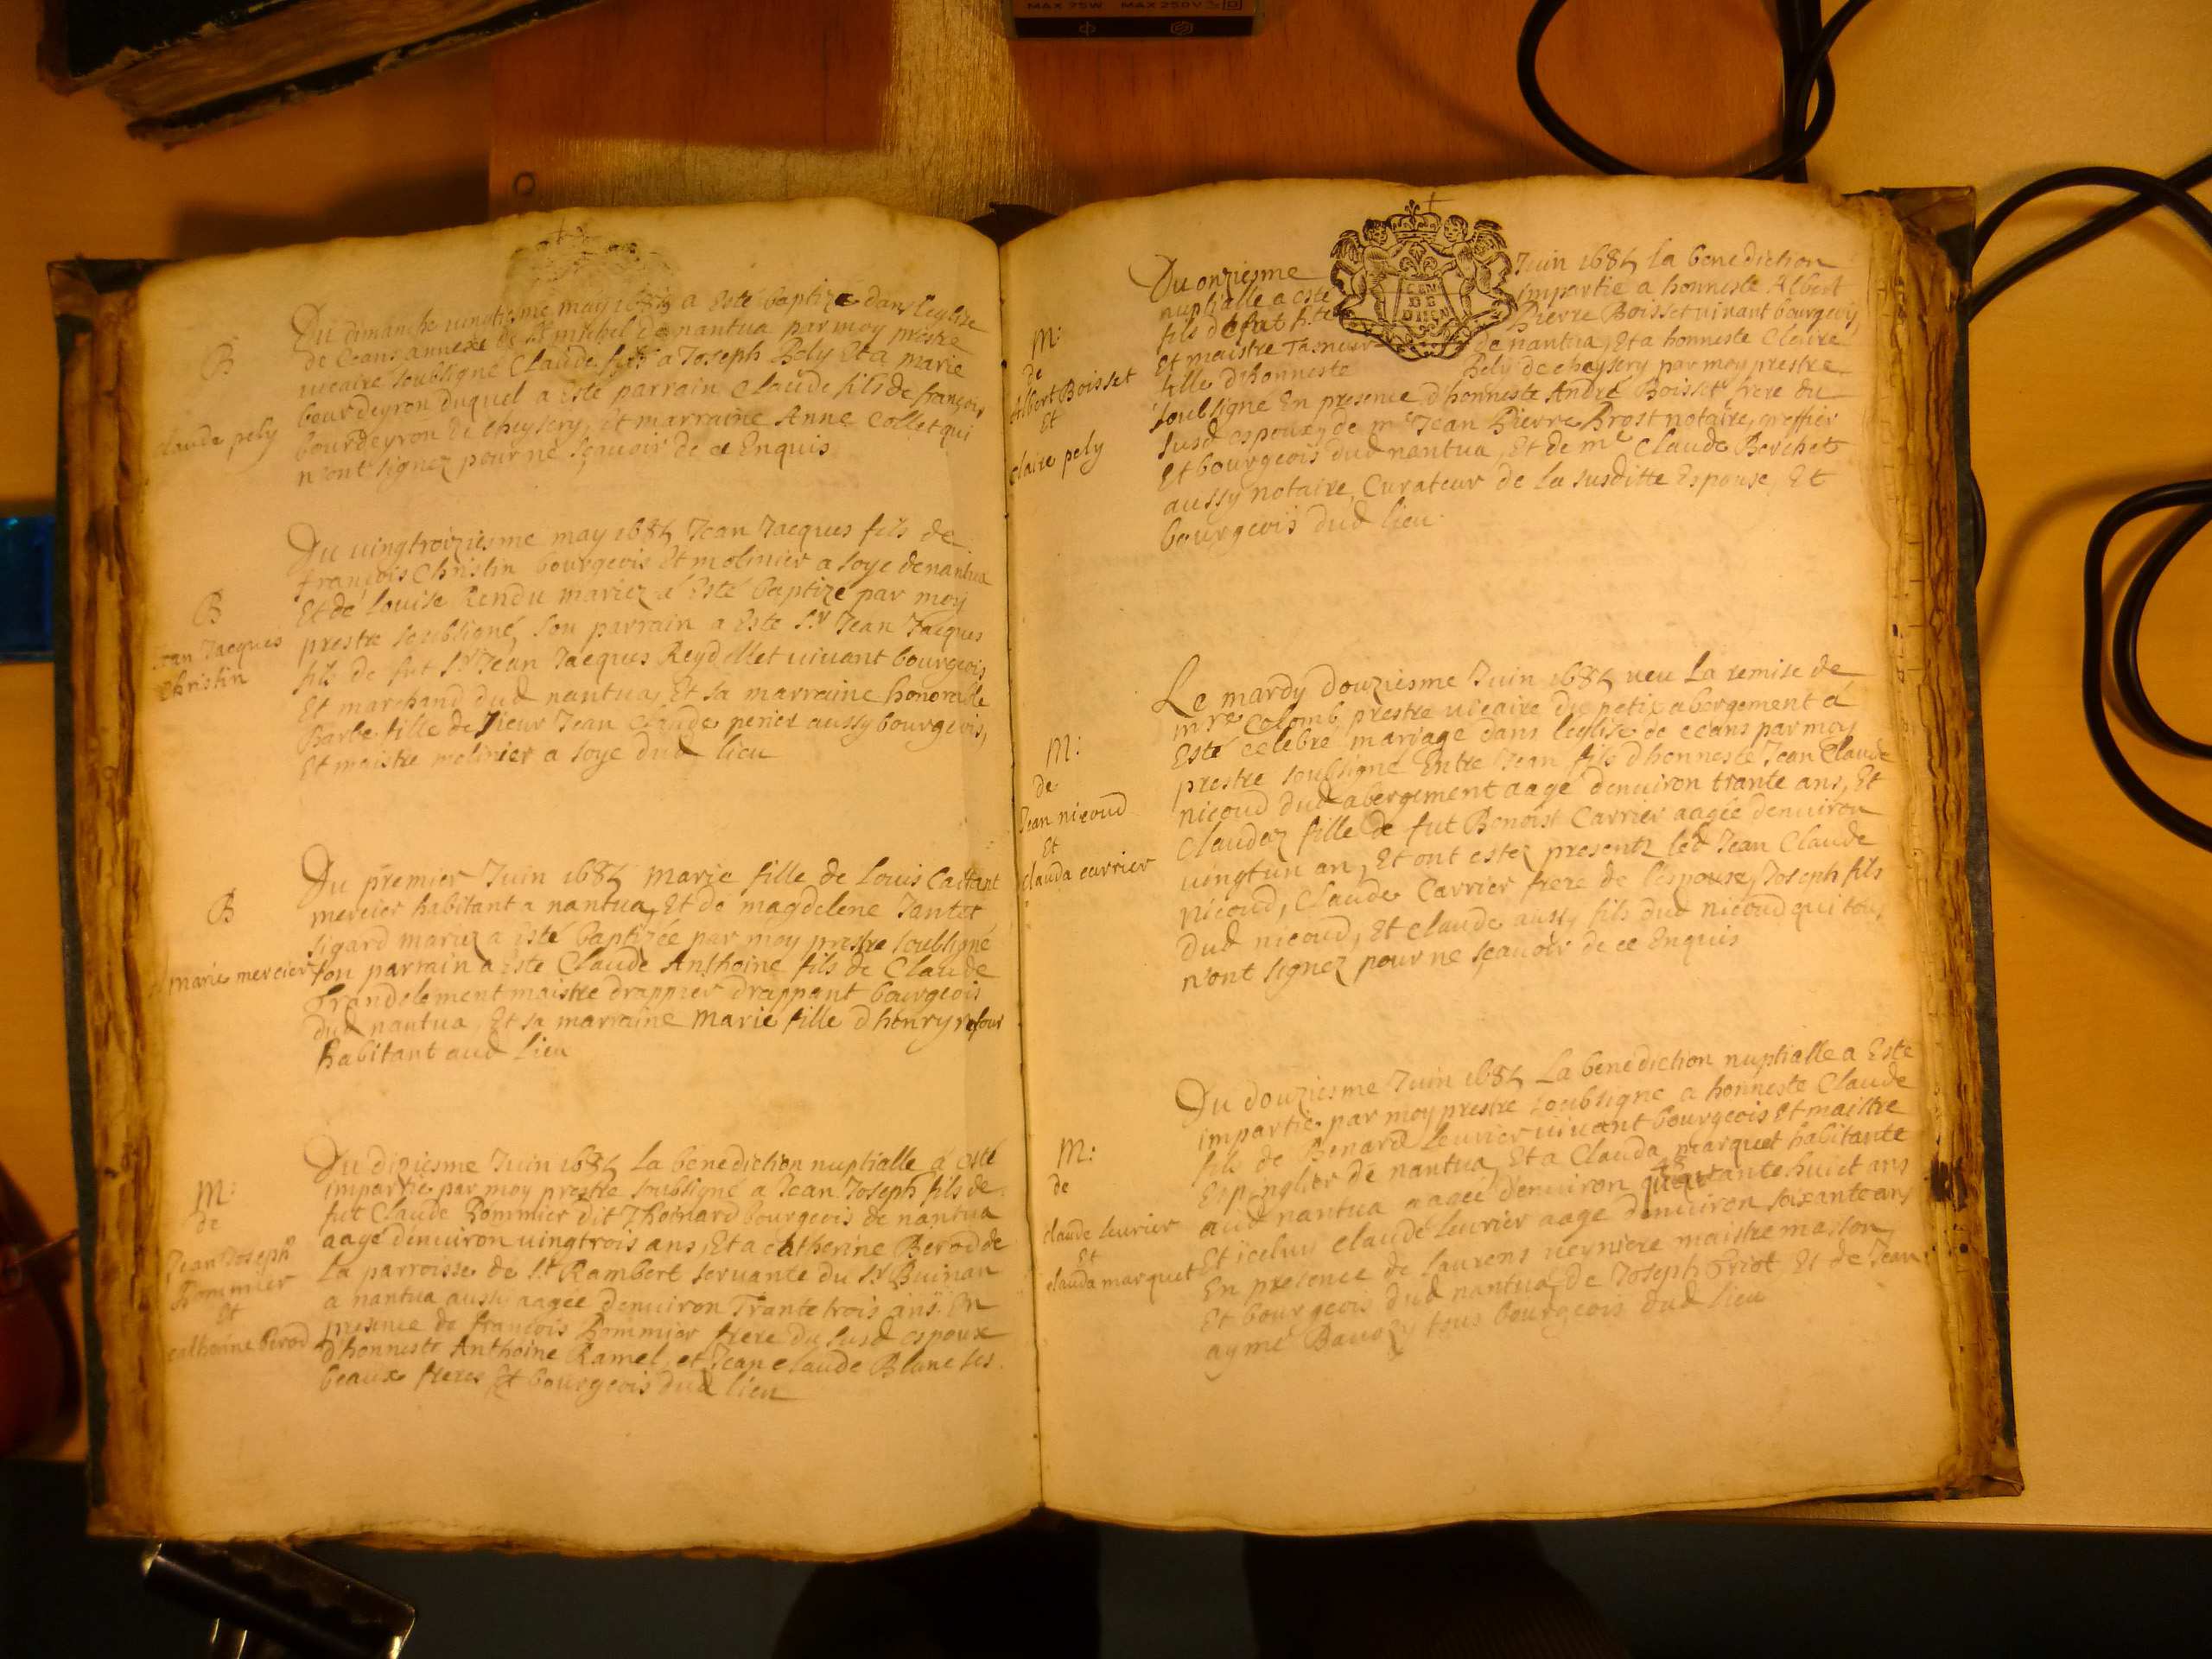 MAX 75W MAX 250V
B
claude pely
Du dimanche vingtiesme may 1685 a Esté baptizé dans l'eglise
de Ceans annexe de St michel de nantua par moy prestre
vicaire soubsigné Claude fils a Joseph Pely Et a marie
bourdeyron duquel a esté parrain Claude fils de françois
bourdeyron de cheysery, et marraine Anne Collet qui
n'ont signez pour ne sçavoir de ce Enquis
B
Jean Jacques
Christin
Du vingtroiziesme may 1685 Jean Jacques fils de
françois Christin bourgeois Et molinier a soye de nantua
Et de Louise Rendu mariez a Esté baptizé par moy
prestre soubsigné, son parrain a Esté Sr Jean Jacques
fils de fut Sr Jean Jacques Reydellet vivant bourgeois
Et marchand dud nantua, Et sa marraine honorable
Barbe fille de Sieur Jean Claude perier aussy bourgeois,
Et maistre molinier a soye dud lieu
B
marie mercier
Du premier Juin 1685 Marie fille de Louis
mercier habitant a nantua, Et de magdelene Jantet
sigard mariez a esté baptizée par moy prestre soubsigné
son parrain a Esté Claude Anthoine fils de Claude
Grandclement maistre drappier drappant bourgeois
dud nantua, Et sa marraine Marie fille d'henry
habitant aud lieu
M:
de
Jean Joseph
Pommier
Et
catherine Berod
Du diziesme Juin 1685 La benediction nuptialle a esté
impartie par moy prestre soubsigné a Jean Joseph fils de
fut Claude Pommier dit Thoinard bourgeois de nantua
aagé denviron vingtrois ans, Et a catherine Berod de
La parroisse de St Rambert servante du Sr Buinan
a nantua aussy aagée denviron Trante trois ans. En
presence de françois Pommier frere du susd espoux
d'honneste Anthoine Ramel, et Jean claude Blanc ses
beaux freres Et bourgeois dud lieu
M:
de
Albert Boisset
Et
Claire pely
GEN
DE
DIJON
Du onziesme Juin 1685 La benediction
nuptialle a esté impartie a honneste Albert
fils de fut h.te Pierre Boisset vivant bourgeois
Et maistre Tasneur de nantua, Et a honneste Claire
fille d'honneste Pely de cheysery par moy prestre
soubsigné En presence d'honneste André Boisset frere du
susd espoux, de me Jean Pierre Prost notaire, greffier
Et bourgeois dud nantua, Et de me Claude Berchet
aussy notaire, Curateur de la susditte Espouse, Et
bourgeois dud lieu
M:
de
Jean nicoud
Et
clauda carrier
Le mardy douziesme Juin 1685 veu La remise de
mre Colomb prestre vicaire du petix abergement a
Esté celebré mariage dans l'eglise de ceans par moy
prestre soubsigné Entre Jean fils d'honneste Jean Claude
nicoud dud abergement aagé denviron trante ans, Et
Claudaz fille de fut Benoist Carrier aagée denviron
vingt un an, Et ont estez presentz led Jean Claude
nicoud, Claude Carrier frere de l'espouse, Joseph fils
dud nicoud, Et claude aussy fils dud nicoud qui tous
n'ont signez pour ne sçavoir de ce Enquis
M:
de
claude levrier
Et
clauda marquet
Du douziesme Juin 1685 La benediction nuptialle a Esté
impartie par moy prestre soubsigné a honneste Claude
fils de Benard Levrier vivant bourgeois et maistre
Espinglier de nantua, Et a Clauda marquet habitante
aud nantua aagée denviron quarante huict ans
48
Et iceluy claude Levrier aagé denviron soixante ans
En presence de Laurens verniere maistre masson
Et bourgeois dud nantua, de Joseph Griot Et de Jean
aymé Bavozy tous bourgeois dud lieu